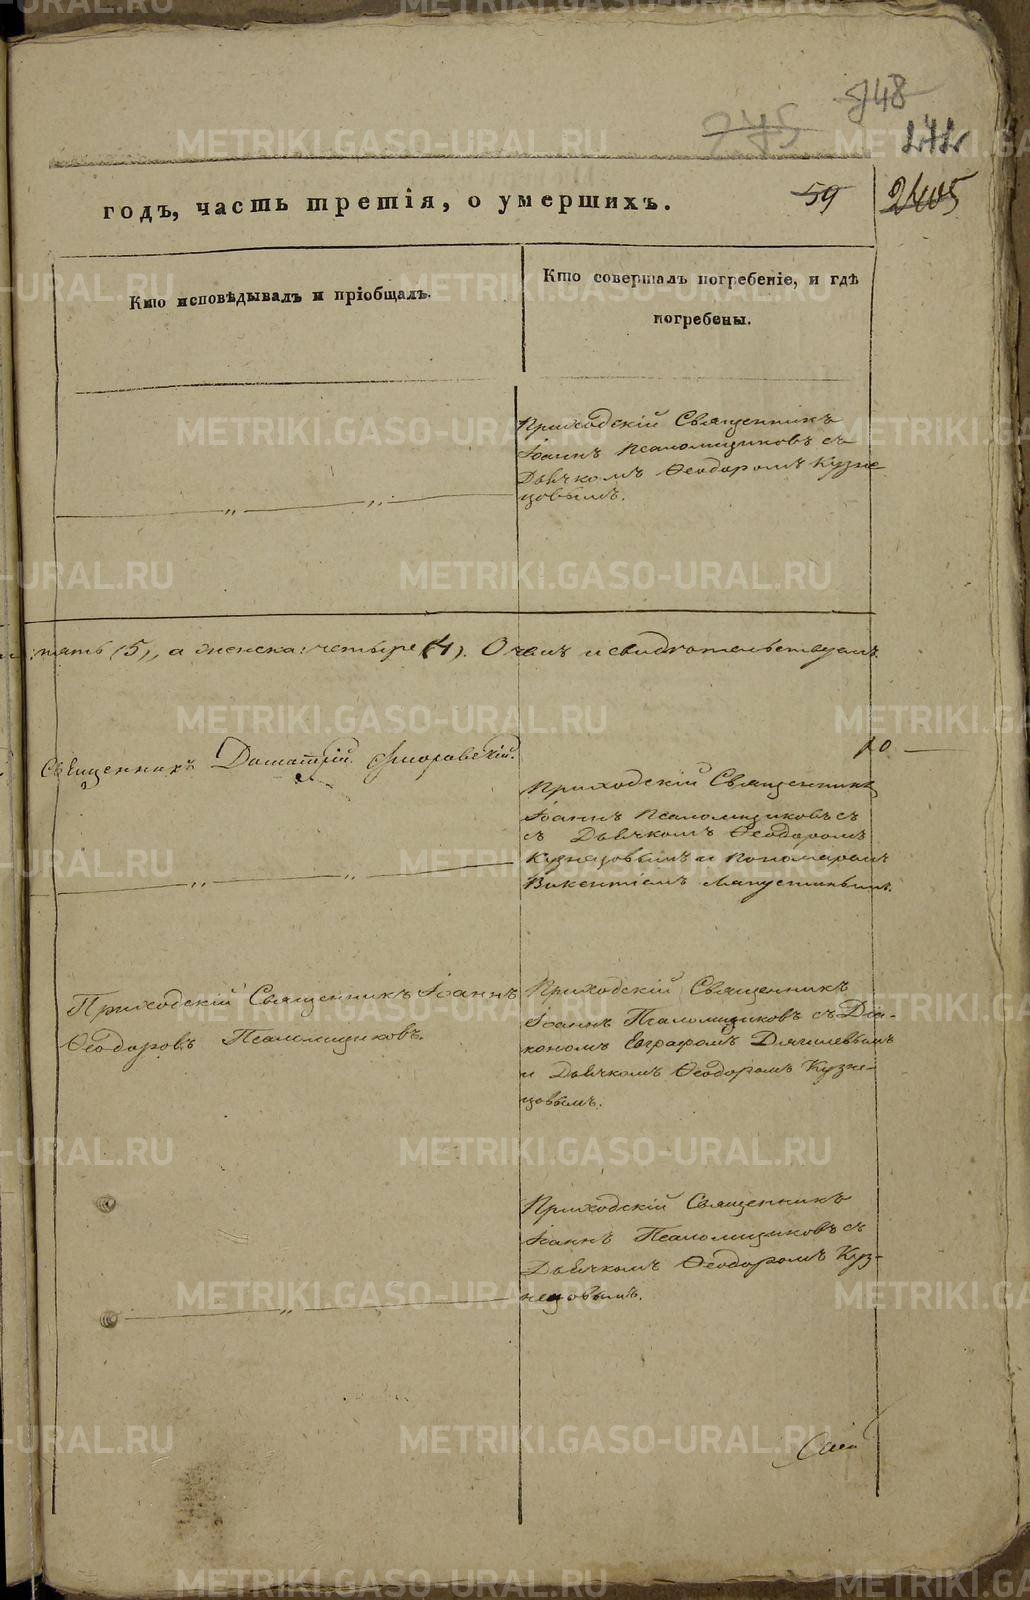 748
275
272
59
2405
годъ, часть третія, о умершихъ.
Кто исповѣдывалъ и пріобщалъ.
Кто совершалъ погребеніе, и гдѣ
погребены.
Приходскій Священникъ
Іоаннъ Псаломщиковъ съ
Дьячкомъ Ѳеодоромъ Кузне
цовымъ.
пять (5), а женска: четыре (4). О чемъ и свидѣтельствуемъ.
Священникъ
10
Приходскій Священникъ
Іоаннъ Псаломщиковъ съ
съ Дьячкомъ Ѳеодоромъ
Кузнецовымъ и Пономаремъ
Викентіемъ
Приходскій Священникъ Іоаннъ
Ѳеодоровъ Псаломщиковъ.
Приходскій Священникъ
Іоаннъ Псаломщиковъ съ Діа-
кономъ Евграфомъ
и Дьячкомъ Ѳеодоромъ Кузне-
цовымъ.
Приходскій Священникъ
Іоаннъ Псаломщиковъ съ
Дьячкомъ Ѳеодоромъ Куз-
нецовымъ.
METRIKI.GASO-URAL.RU